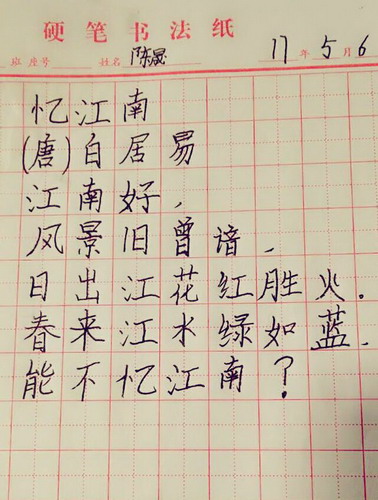 硬笔书法纸
班 座号 姓名 陈晟 17年5月6
忆江南
(唐)白居易
江南好,
风景旧曾谙,
日出江花红胜火.
春来江水绿如蓝.
能不忆江南?